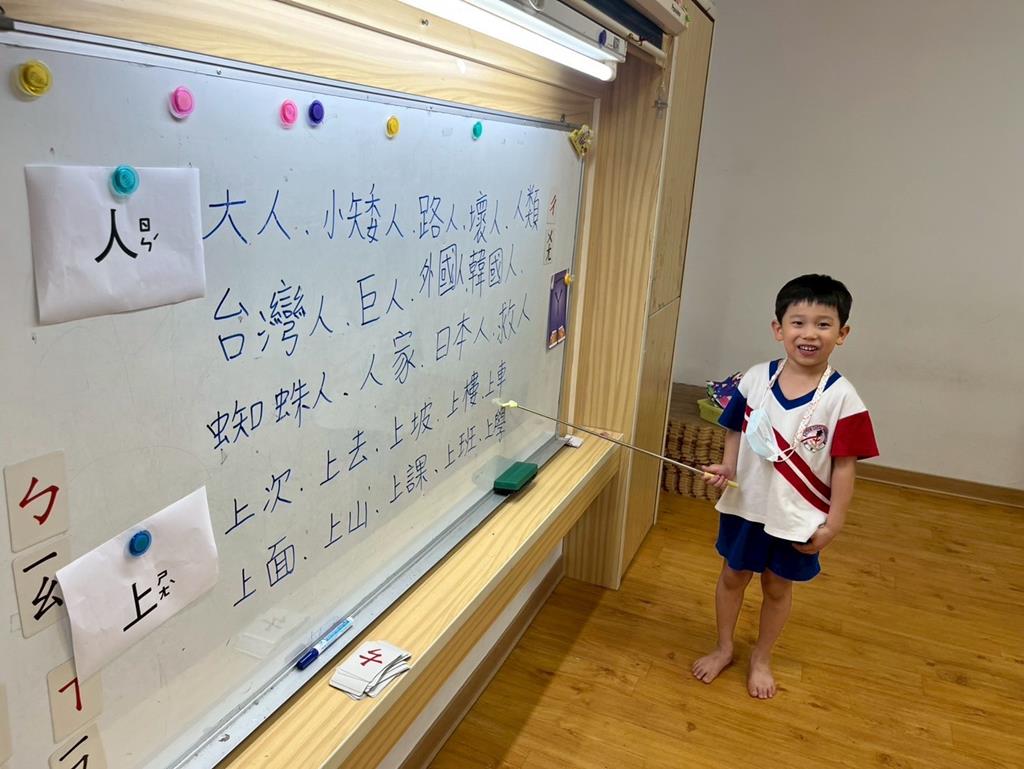 人ㄖㄣˊ
大人、小矮人、路人、壞人、人類
台灣人、巨人、外國人、韓國人、
蜘蛛人、人家、日本人、救人
上次、上去、上坡、上樓、上車
上面、上山、上課、上班、上學
上ㄕㄤˋ
ㄅ
ㄠ
ㄔ
ㄨㄤ